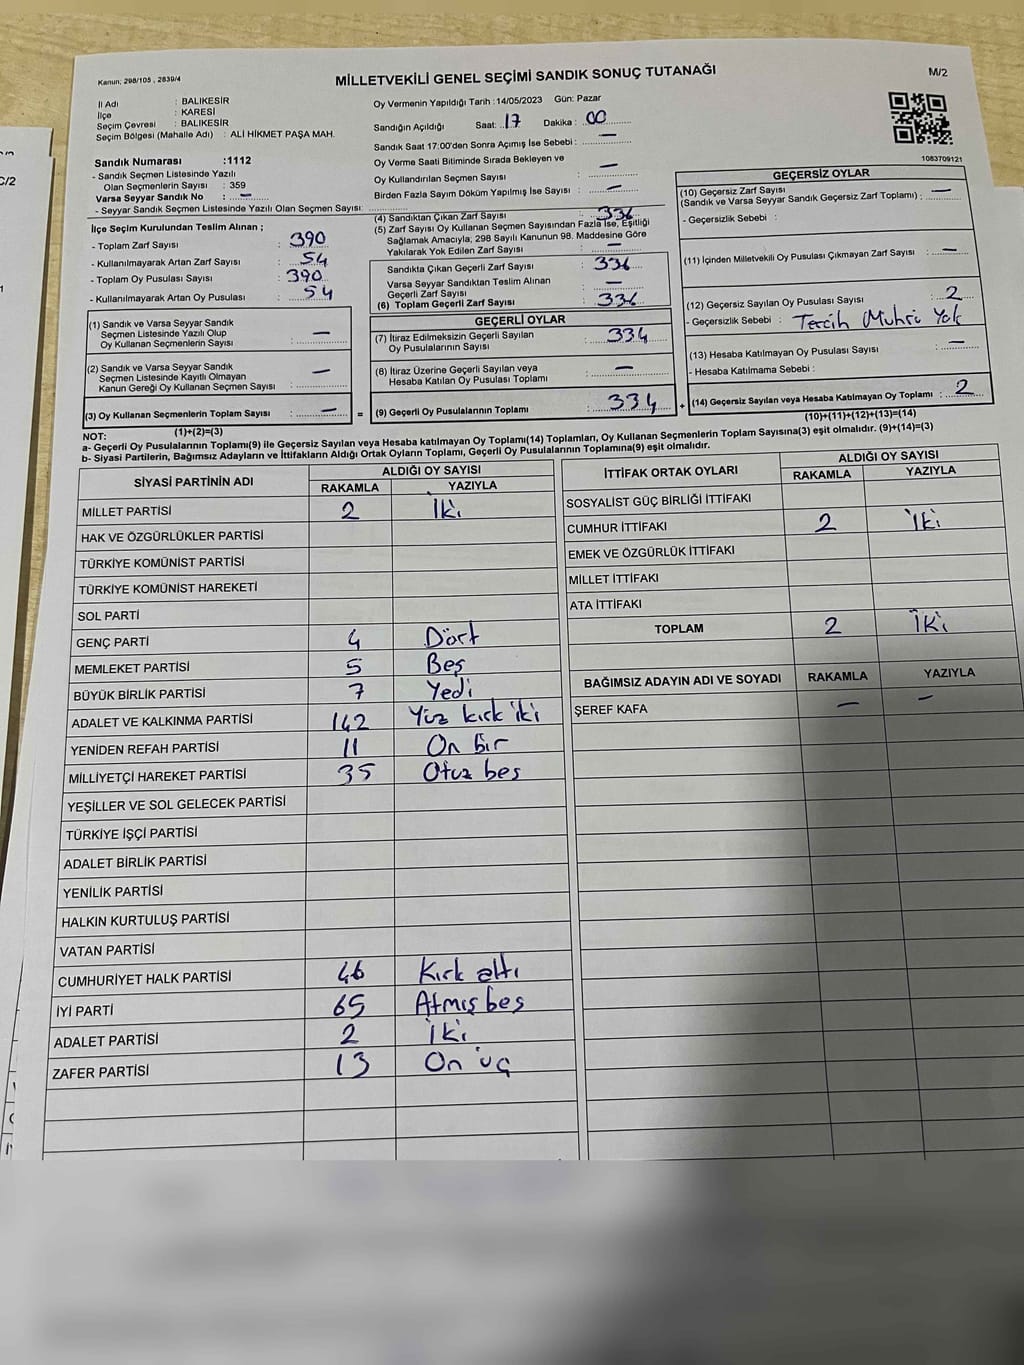 Kanun; 298/105 , 2839/4
MİLLETVEKİLİ GENEL SEÇİMİ SANDIK SONUÇ TUTANAĞI
M/2
İl Adı : BALIKESİR
İlçe : KARESİ
Seçim Çevresi : BALIKESİR
Seçim Bölgesi (Mahalle Adı) : ALİ HİKMET PAŞA MAH.
Sandık Numarası :1112
- Sandık Seçmen Listesinde Yazılı
Olan Seçmenlerin Sayısı : 359
Varsa Seyyar Sandık No : —
- Seyyar Sandık Seçmen Listesinde Yazılı Olan Seçmen Sayısı:
İlçe Seçim Kurulundan Teslim Alınan ;
- Toplam Zarf Sayısı : 390
- Kullanılmayarak Artan Zarf Sayısı : 54
- Toplam Oy Pusulası Sayısı : 390
- Kullanılmayarak Artan Oy Pusulası : 54
(1) Sandık ve Varsa Seyyar Sandık
Seçmen Listesinde Yazılı Olup
Oy Kullanan Seçmenlerin Sayısı : —
(2) Sandık ve Varsa Seyyar Sandık
Seçmen Listesinde Kayıtlı Olmayan
Kanun Gereği Oy Kullanan Seçmen Sayısı : —
(3) Oy Kullanan Seçmenlerin Toplam Sayısı : — =
(1)+(2)=(3)
Oy Vermenin Yapıldığı Tarih :14/05/2023 Gün: Pazar
Sandığın Açıldığı Saat: 17 Dakika : 00
Sandık Saat 17:00'den Sonra Açımış İse Sebebi : —
Oy Verme Saati Bitiminde Sırada Bekleyen ve
Oy Kullandırılan Seçmen Sayısı : —
Birden Fazla Sayım Döküm Yapılmış İse Sayısı : —
(4) Sandıktan Çıkan Zarf Sayısı : 336
(5) Zarf Sayısı Oy Kullanan Seçmen Sayısından Fazla İse, Eşitliği
Sağlamak Amacıyla; 298 Sayılı Kanunun 98. Maddesine Göre
Yakılarak Yok Edilen Zarf Sayısı : —
Sandıkta Çıkan Geçerli Zarf Sayısı : 336
Varsa Seyyar Sandıktan Teslim Alınan
Geçerli Zarf Sayısı : —
(6) Toplam Geçerli Zarf Sayısı : 336
GEÇERLİ OYLAR
(7) İtiraz Edilmeksizin Geçerli Sayılan
Oy Pusulalarının Sayısı : 334
(8) İtiraz Üzerine Geçerli Sayılan veya
Hesaba Katılan Oy Pusulası Toplamı : —
(9) Geçerli Oy Pusulalarının Toplamı : 334 +
1083709121
GEÇERSİZ OYLAR
(10) Geçersiz Zarf Sayısı
(Sandık ve Varsa Seyyar Sandık Geçersiz Zarf Toplamı) : —
- Geçersizlik Sebebi :
(11) İçinden Milletvekili Oy Pusulası Çıkmayan Zarf Sayısı : —
(12) Geçersiz Sayılan Oy Pusulası Sayısı : 2
- Geçersizlik Sebebi : Tercih Muhrü Yok
(13) Hesaba Katılmayan Oy Pusulası Sayısı : —
- Hesaba Katılmama Sebebi :
(14) Geçersiz Sayılan veya Hesaba Katılmayan Oy Toplamı : 2
(10)+(11)+(12)+(13)=(14)
NOT:
a- Geçerli Oy Pusulalarının Toplamı(9) ile Geçersiz Sayılan veya Hesaba katılmayan Oy Toplamı(14) Toplamları, Oy Kullanan Seçmenlerin Toplam Sayısına(3) eşit olmalıdır. (9)+(14)=(3)
b- Siyasi Partilerin, Bağımsız Adayların ve İttifakların Aldığı Ortak Oyların Toplamı, Geçerli Oy Pusulalarının Toplamına(9) eşit olmalıdır.
SİYASİ PARTİNİN ADI ALDIĞI OY SAYISI
RAKAMLA YAZIYLA
MİLLET PARTİSİ 2 İki
HAK VE ÖZGÜRLÜKLER PARTİSİ
TÜRKİYE KOMÜNİST PARTİSİ
TÜRKİYE KOMÜNİST HAREKETİ
SOL PARTİ
GENÇ PARTİ 4 Dört
MEMLEKET PARTİSİ 5 Beş
BÜYÜK BİRLİK PARTİSİ 7 Yedi
ADALET VE KALKINMA PARTİSİ 142 Yüz kırk iki
YENİDEN REFAH PARTİSİ 11 On bir
MİLLİYETÇİ HAREKET PARTİSİ 35 Otuz beş
YEŞİLLER VE SOL GELECEK PARTİSİ
TÜRKİYE İŞÇİ PARTİSİ
ADALET BİRLİK PARTİSİ
YENİLİK PARTİSİ
HALKIN KURTULUŞ PARTİSİ
VATAN PARTİSİ
CUMHURİYET HALK PARTİSİ 46 Kırk altı
İYİ PARTİ 65 Atmış beş
ADALET PARTİSİ 2 İki
ZAFER PARTİSİ 13 On üç
İTTİFAK ORTAK OYLARI ALDIĞI OY SAYISI
RAKAMLA YAZIYLA
SOSYALİST GÜÇ BİRLİĞİ İTTİFAKI
CUMHUR İTTİFAKI 2 İki
EMEK VE ÖZGÜRLÜK İTTİFAKI
MİLLET İTTİFAKI
ATA İTTİFAKI
TOPLAM 2 İki
BAĞIMSIZ ADAYIN ADI VE SOYADI RAKAMLA YAZIYLA
ŞEREF KAFA — —